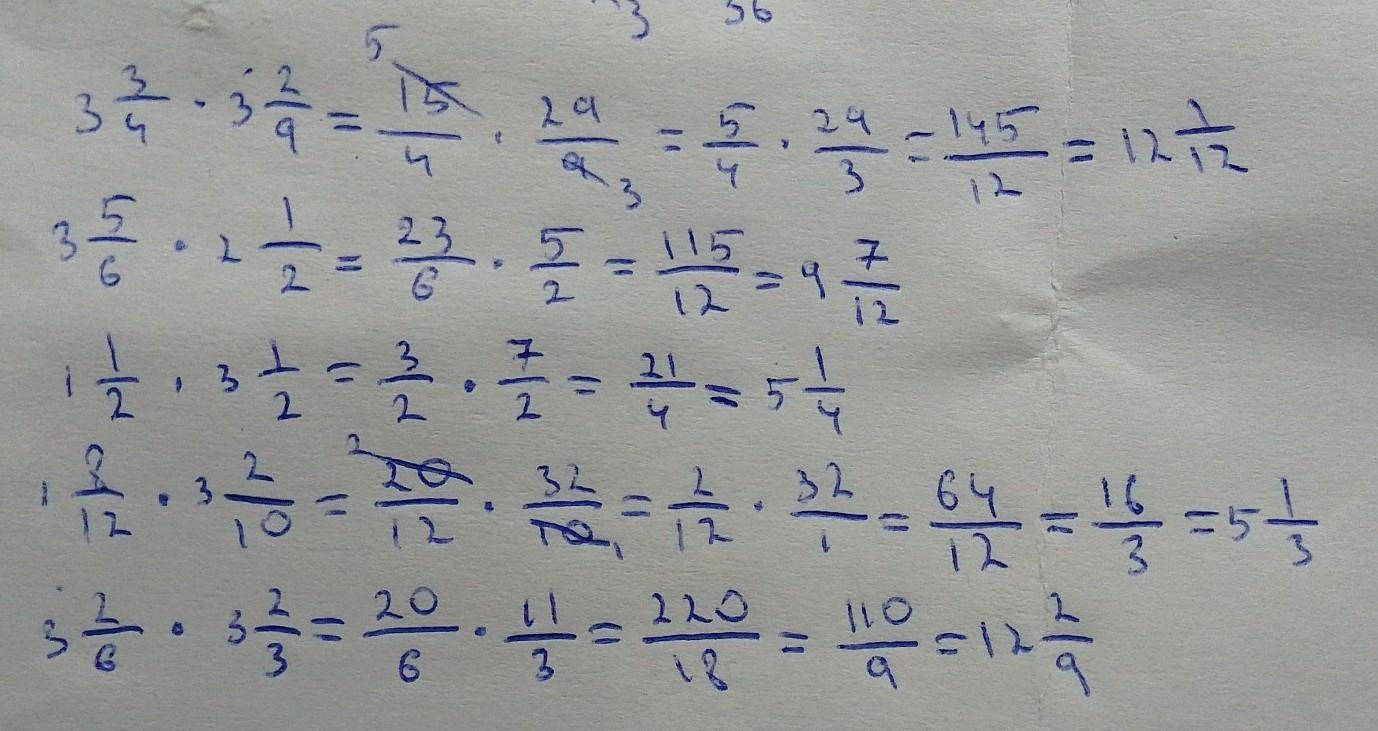 3 56
3 3/4 · 3 2/9 = 15/4 5 · 29/9 3 = 5/4 · 29/3 = 145/12 = 12 1/12
3 5/6 · 2 1/2 = 23/6 · 5/2 = 115/12 = 9 7/12
1 1/2 · 3 1/2 = 3/2 · 7/2 = 21/4 = 5 1/4
1 8/12 · 3 2/10 = 20/12 2 · 32/10 1 = 2/12 · 32/1 = 64/12 = 16/3 = 5 1/3
3 2/6 · 3 2/3 = 20/6 · 11/3 = 220/18 = 110/9 = 12 2/9